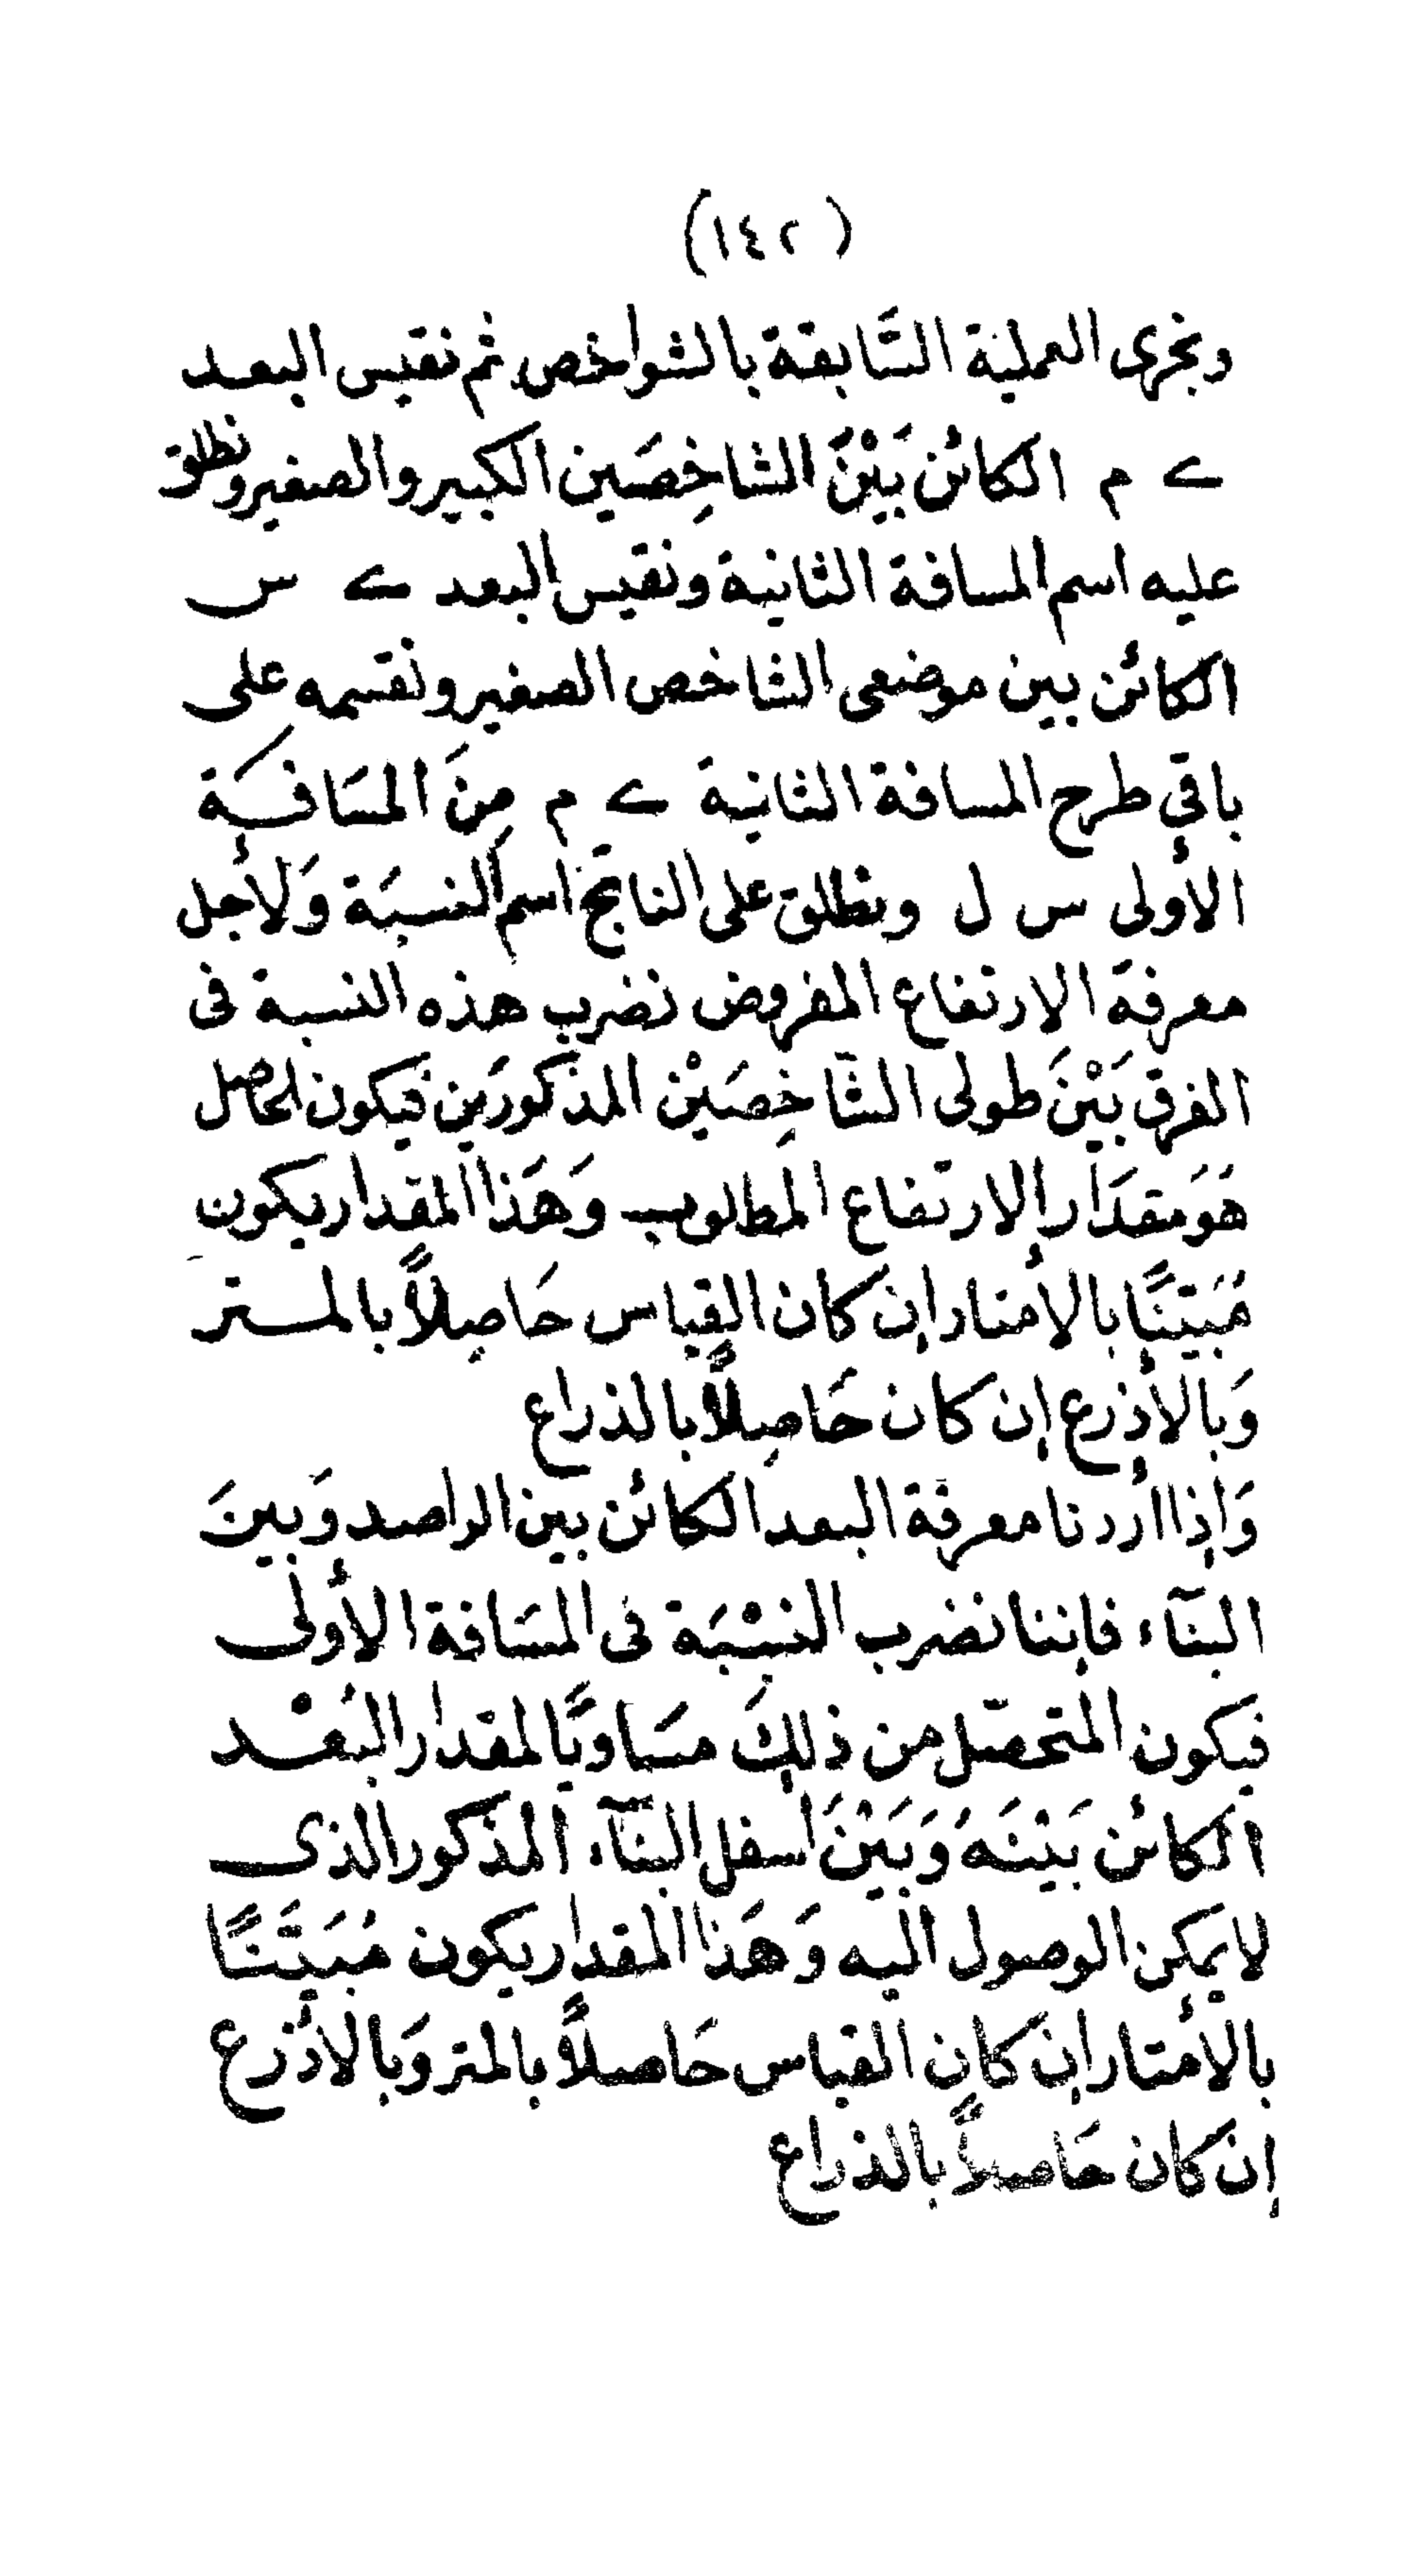 (١٤٢)
ونجرى العملية السَّابقة بالشواخص ثم نقيس البعد
ے م الكائن بَيْنَ الشاخِصَين الكبير والصغير ونطلق
عليه اسم المسافة الثانية ونقيس البعد ے س
الكائن بين موضعى الشاخص الصغير ونقسمه على
باقي طرح المسافة الثانية ے م مِنَ المسَافَة
الأولى س ل ونطلق على الناتج اسم النسبَة وَلأجل
معرفة الارتفاع المفروض نضرب هذه النسبة فى
الفرق بَيْنَ طولى الشَّاخِصَيْن المذكورَين فيكون الحاصل
هَوَ مقدَار الارتفاع المطلوب وَهَذا المقدار يكون
مُبَيَّنًا بالأمتار إن كان القياس حَاصِلاً بالمتر
وَبالأذرع إن كان حَاصِلاً بالذراع
وَإذا أردنا معرفة البعد الكائن بين الراصد وَبينَ
البنآء فإننا نضرب النسْبَة فى المسَافة الأولى
فيكون المتحصّل من ذلِكَ مسَاويًا لمقدار البُعْد
الكائن بَيْنَهُ وَبَيْنَ اسفل البنآء المذكور الذى
لا يمكن الوصول اليه وَهَذا المقدار يكون مُبَيَّنًا
بالأمتار إن كان القياس حَاصلاً بالمتر وَبالأذرع
إن كان حَاصلاً بالذراع